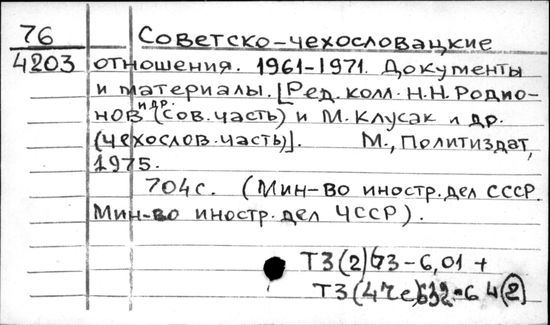 76 Советско-чехословацкие
4203 отношения. 1961-1971. Документы
и материалы. [Ред. колл. Н.Н. Родио-
нов и др. (сов. часть) и М. Клусак и др.
(чехослов. часть)]. М., Политиздат,
1975.
704 с. (Мин-во иностр. дел СССР.
Мин-во иностр. дел ЧССР).
Т3(2)73-6,01 +
Т3(4Че)